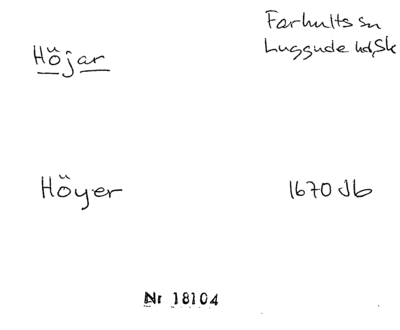 Höjar
Farhults sn
Luggude hd, Sk
Höyer
1670 Jb
Nr 18104